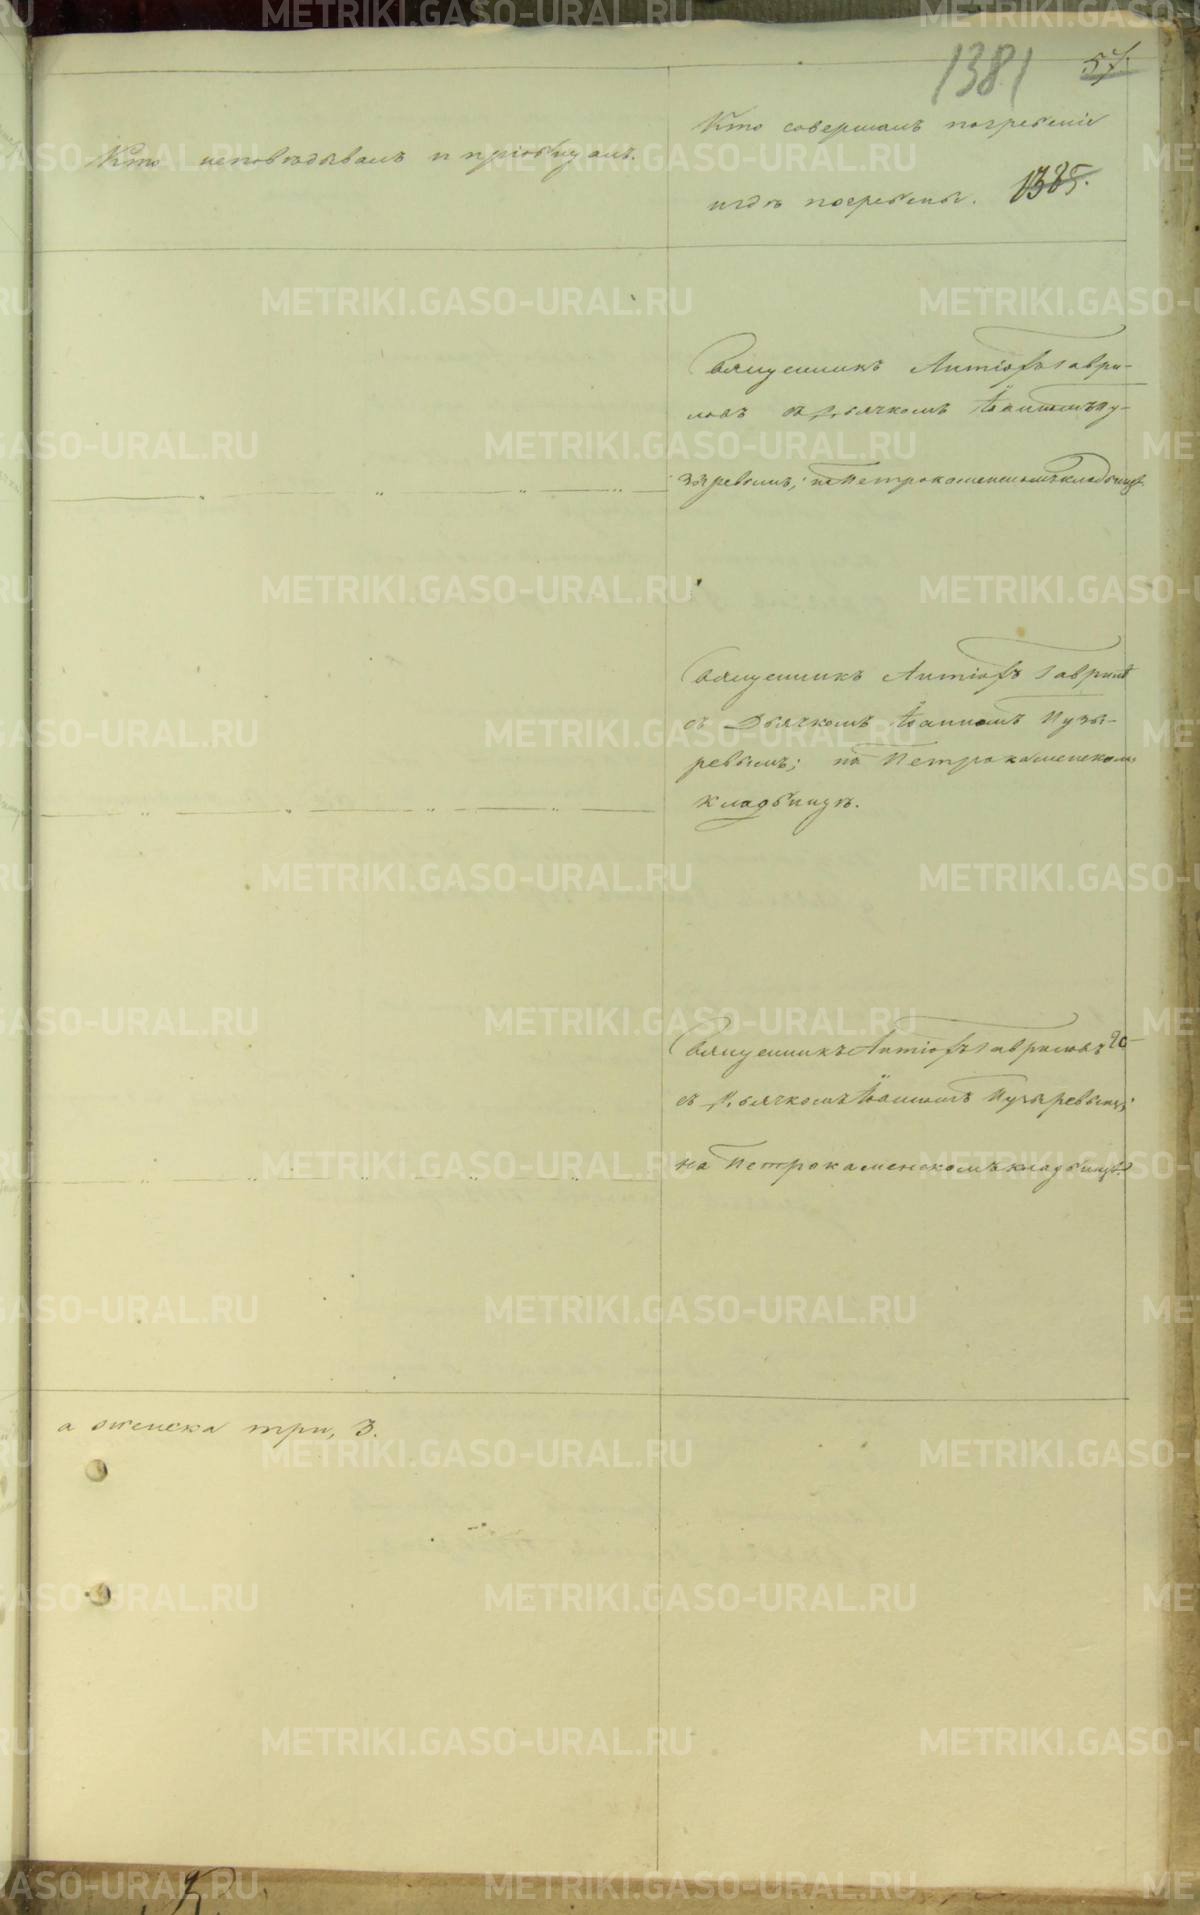 1381 57.
Кто исповѣдывалъ и пріобщалъ.
Кто совершалъ погребеніе
и гдѣ погребены. 1385.
Священникъ Антіохъ Гаври-
ловъ съ Дьячкомъ Іоанномъ Пу-
зыревымъ; на Петрокаменскомъ кладбищѣ
Священникъ Антіохъ Гаврилов
съ Дьячкомъ Іоанномъ Пузы-
ревымъ; на Петрокаменскомъ
кладбищѣ.
Священникъ Антіохъ Гавриловъ
съ Дьячкомъ Іоанномъ Пузыревымъ;
на Петрокаменскомъ кладбищѣ
а женска три, 3.
METRIKI.GASO-URAL.RU